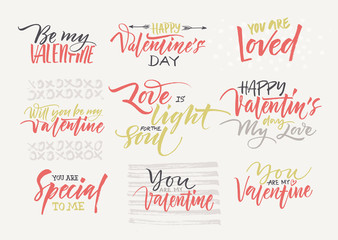 Be my
VALENTINE
HAPPY
Valentine's
DAY
YOU ARE
Loved
Will you be my
valentine
Love IS
light
FOR THE
soul
HAPPY
Valentin's
day
My Love
YOU ARE
Special
TO ME
You
ARE MY
Valentine
You
ARE MY
Valentine